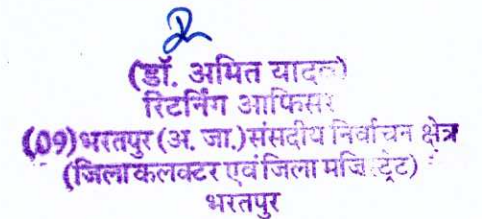 (डॉ. अमित यादव)
रिटर्निंग आफिसर
(09)भरतपुर (अ. जा.) संसदीय निर्वाचन क्षेत्र
(जिला कलक्टर एवं जिला मजिस्ट्रेट)
भरतपुर